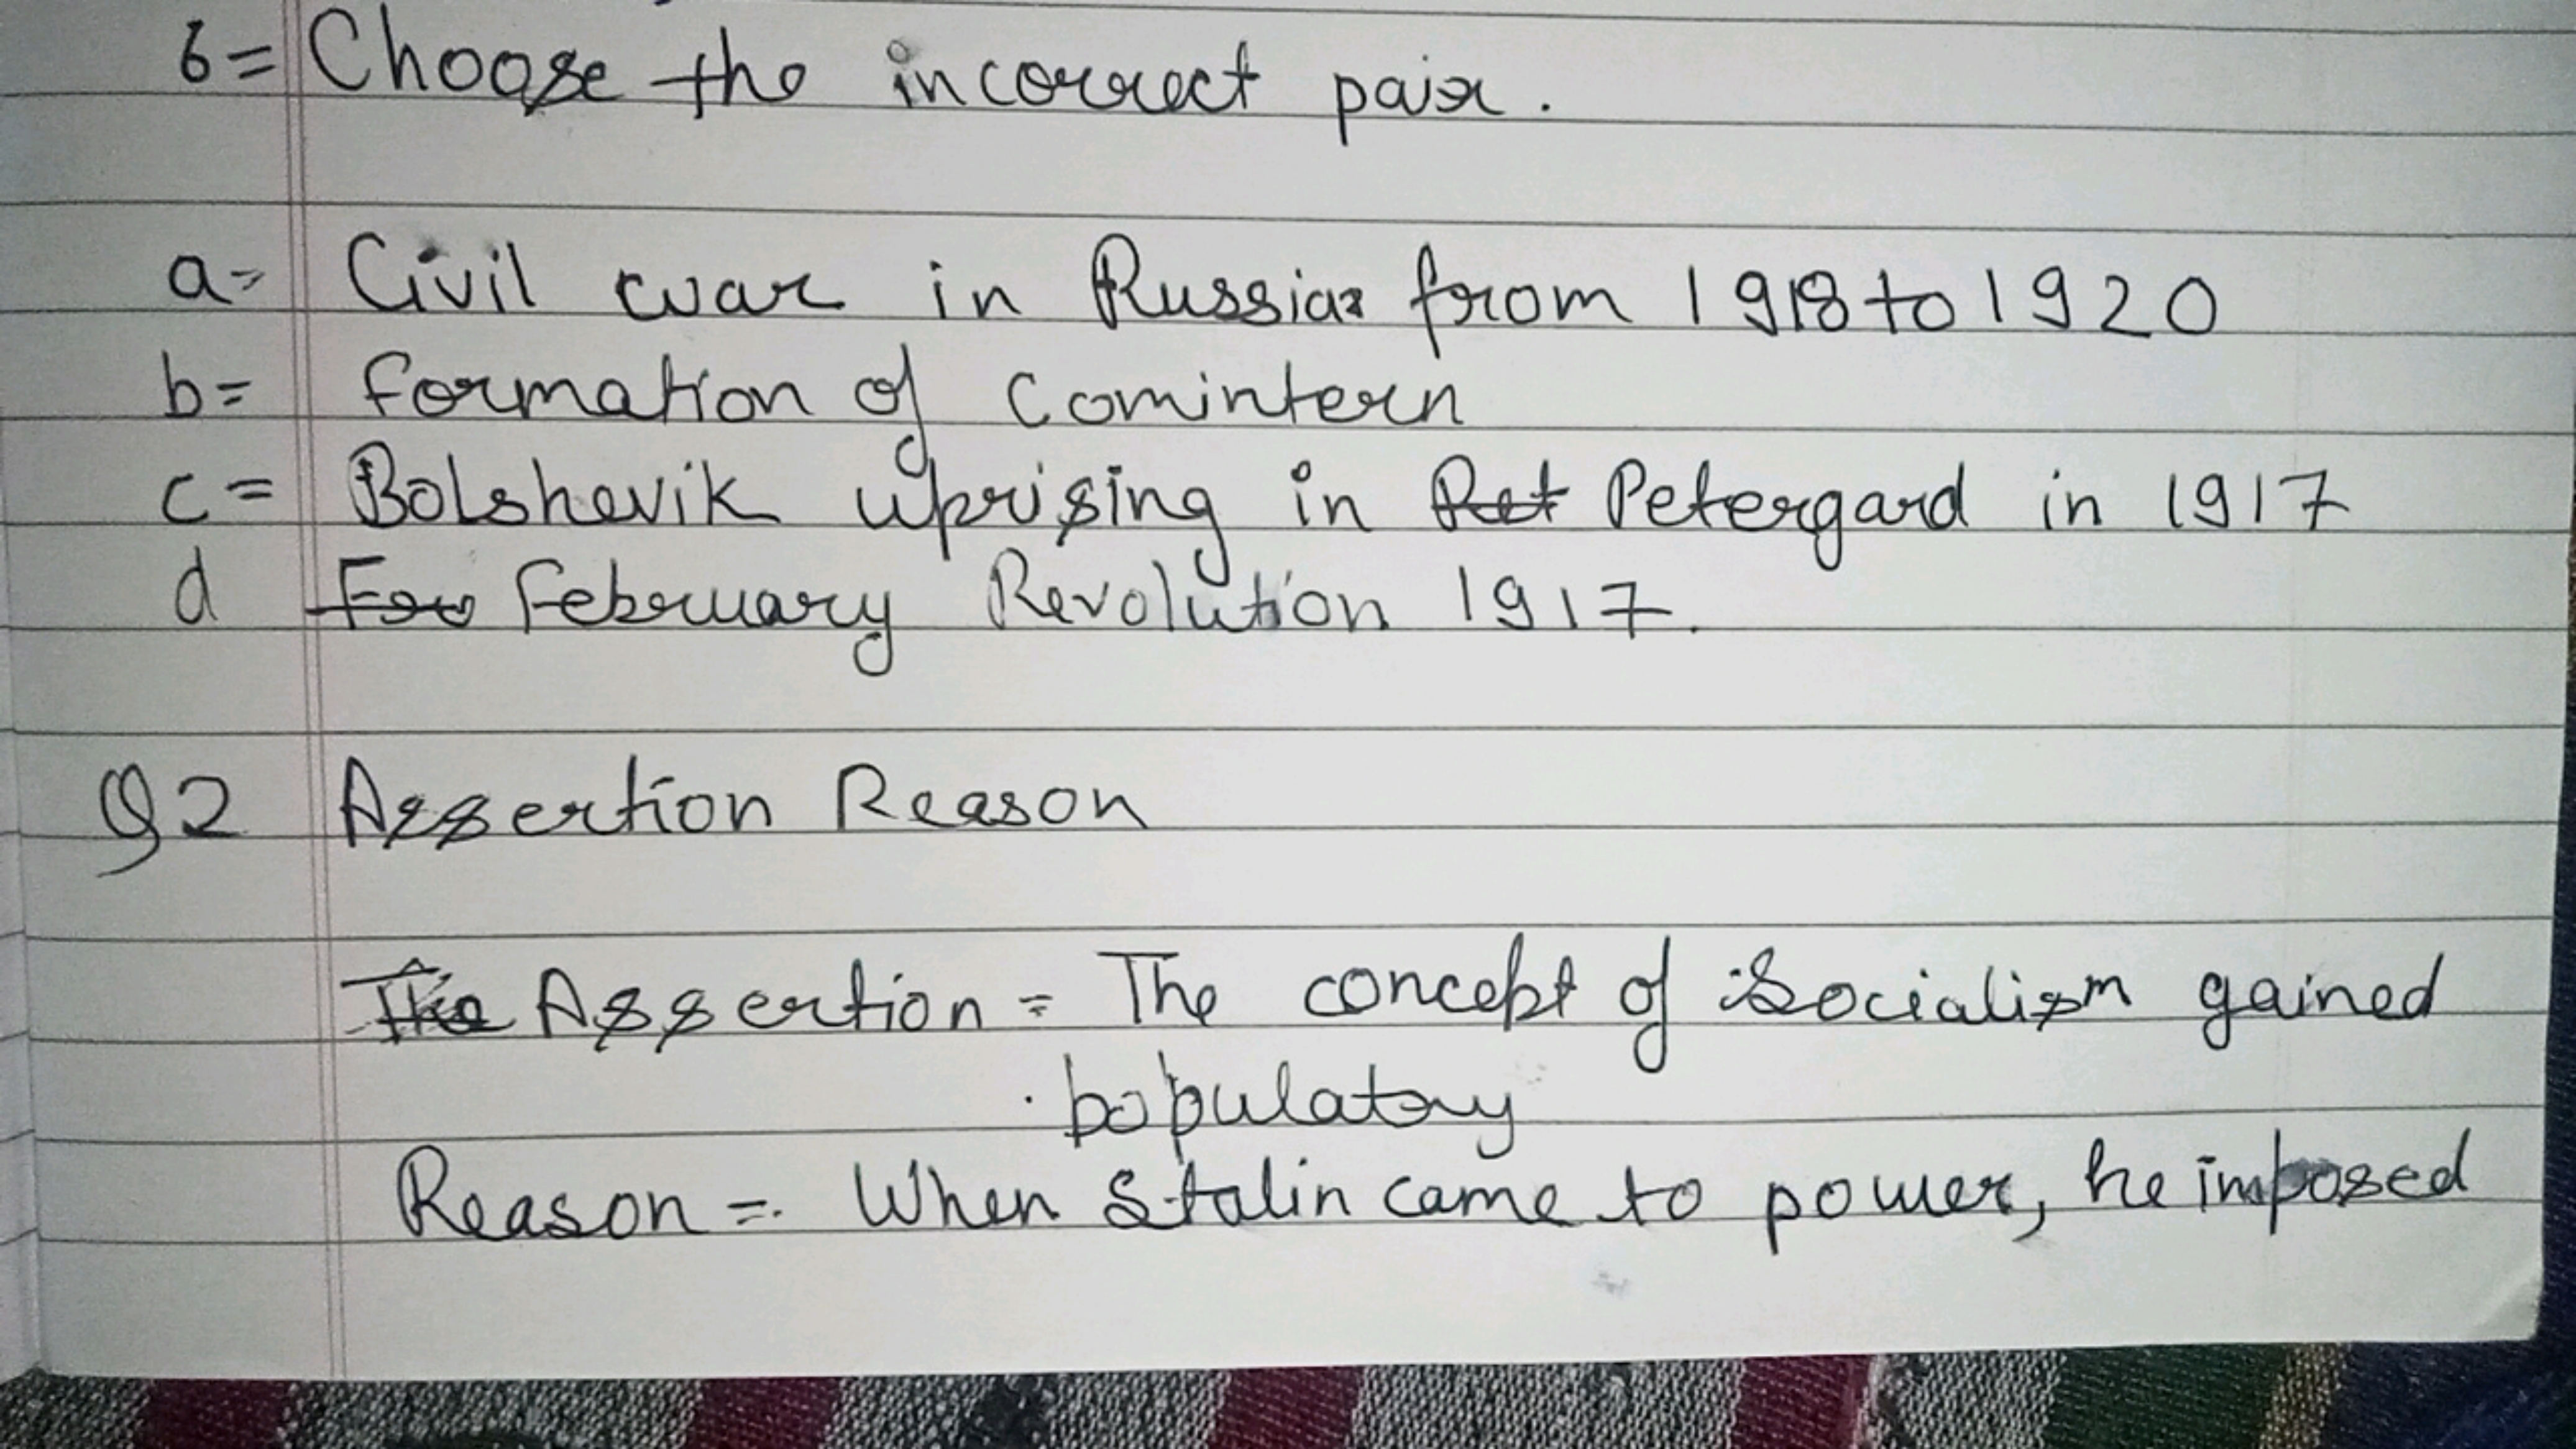 6= Choose the incorrect pair.
a= Civil war in Russia from 1918 to 1920
b= formation of Comintern
c= Bolshevik uprising in Pet Petergard in 1917
d February Revolution 1917.
Q2 Assertion Reason
The Assertion = The concept of Socialism gained
populatory
Reason = When Stalin came to power, he imposed